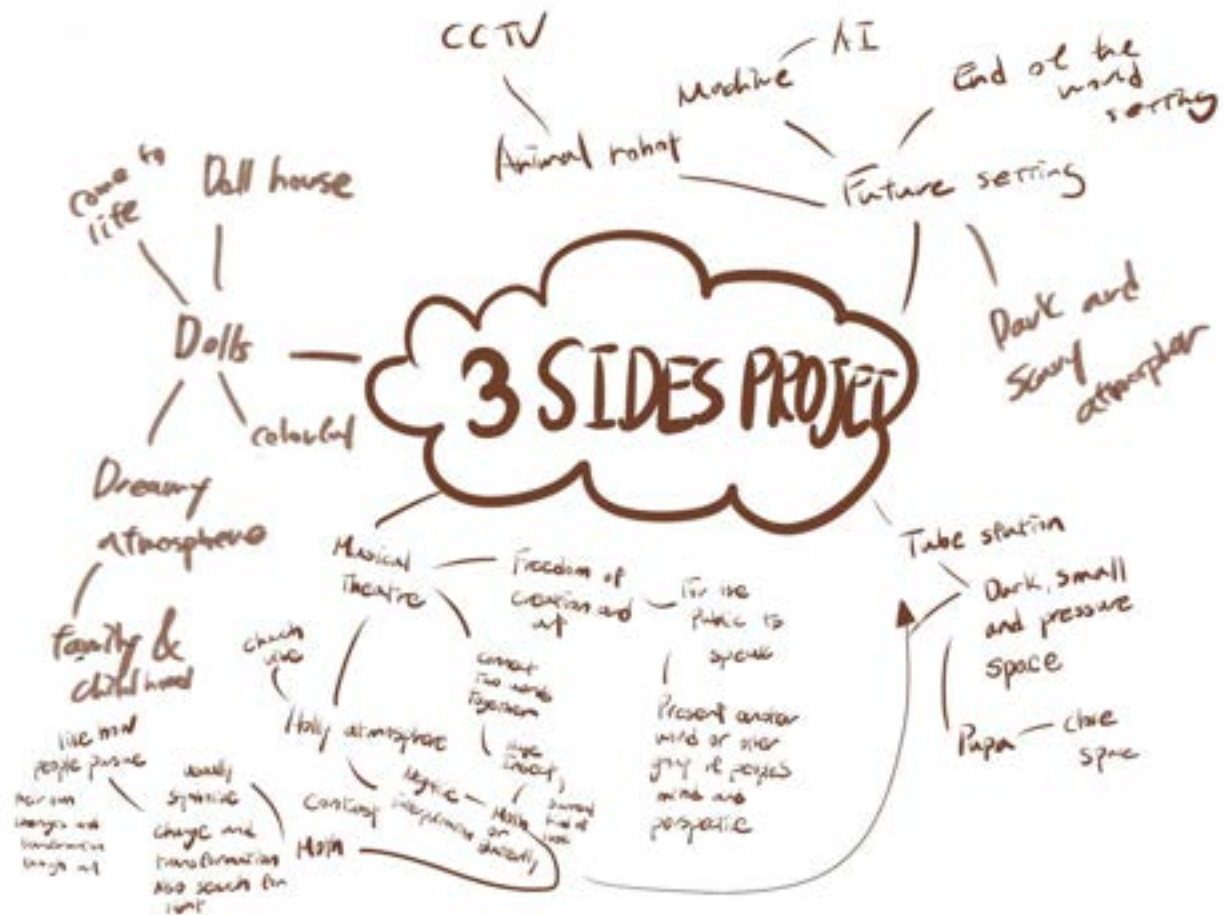 CCTV
AI
Machine
End of the
world
setting
Animal robot
Future setting
Dark and
scary
atmospher
come to
life
Doll house
Dolls
colorful
Dreamy
atmosphere
family &
childhood
3 SIDES PROJET
Musical
Theatre
Freedom of
creation and
art
For the
Public to
speak
Present another
mind or other
group of people's
minds and
perspective
connect
Two worlds
Together
church
vibe
Holly atmosphere
Contrast
Negative
interpretation
Moth
or
butterfly
Moth
usually
symbolise
change and
transformation
Also search for
light
like most
people pursue
changes and
transformation
through art
Tube station
Dark, small
and pressure
space
Pupa
close
space